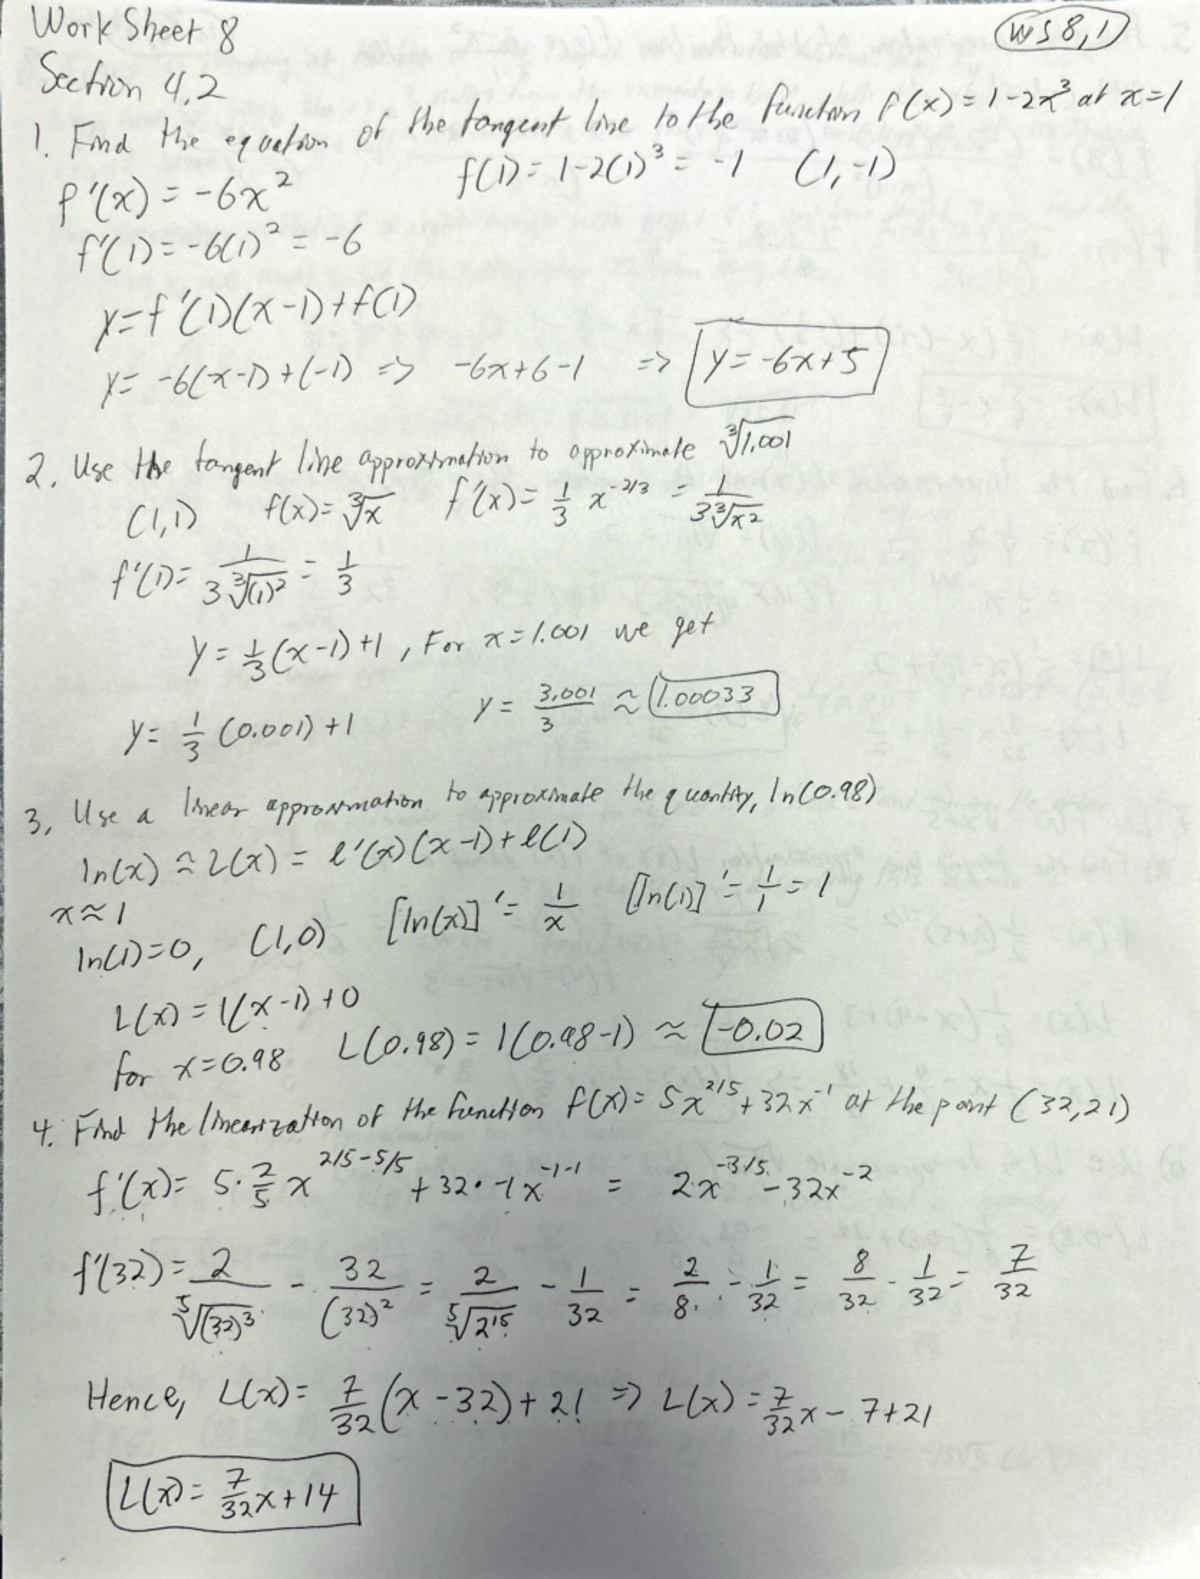 Work Sheet 8
WS 8,1
Section 4,2
1. Find the equation of the tangent line to the function f(x) = 1-2x³ at x=1
f'(x) = -6x²
f(1) = 1-2(1)³ = -1 (1,-1)
f'(1) = -6(1)² = -6
y = f'(1)(x-1)+f(1)
y = -6(x-1)+(-1) => -6x+6-1 => y = -6x+5
2. Use the tangent line approximation to approximate ∛1.001
(1,1) f(x) = ∛x f'(x) = 1/3 x^(-2/3) = 1/(3∛x²)
f'(1) = 1/(3∛(1)²) = 1/3
y = 1/3(x-1)+1, For x=1.001 we get
y = 1/3 (0.001)+1
y = 3.001/3 ≈ 1.00033
3, Use a linear approximation to approximate the quantity, ln(0.98)
ln(x) ≈ L(x) = l'(x)(x-1)+l(1)
x≈1
ln(1)=0, (1,0) [ln(x)]' = 1/x [ln(1)]' = 1/1 = 1
L(x) = 1(x-1)+0
for x=0.98 L(0.98) = 1(0.98-1) ≈ -0.02
4. Find the linearization of the function f(x) = 5x^(2/5)+32x^(-1) at the point (32,21)
f'(x) = 5·2/5 x^(2/5-5/5) + 32·-1x^(-1-1) = 2x^(-3/5) - 32x^(-2)
f'(32) = 2/⁵√(32)³ - 32/(32)² = 2/⁵√2¹⁵ - 1/32 = 2/8 - 1/32 = 8/32 - 1/32 = 7/32
Hence, L(x) = 7/32 (x-32)+21 => L(x) = 7/32 x - 7+21
L(x) = 7/32 x+14